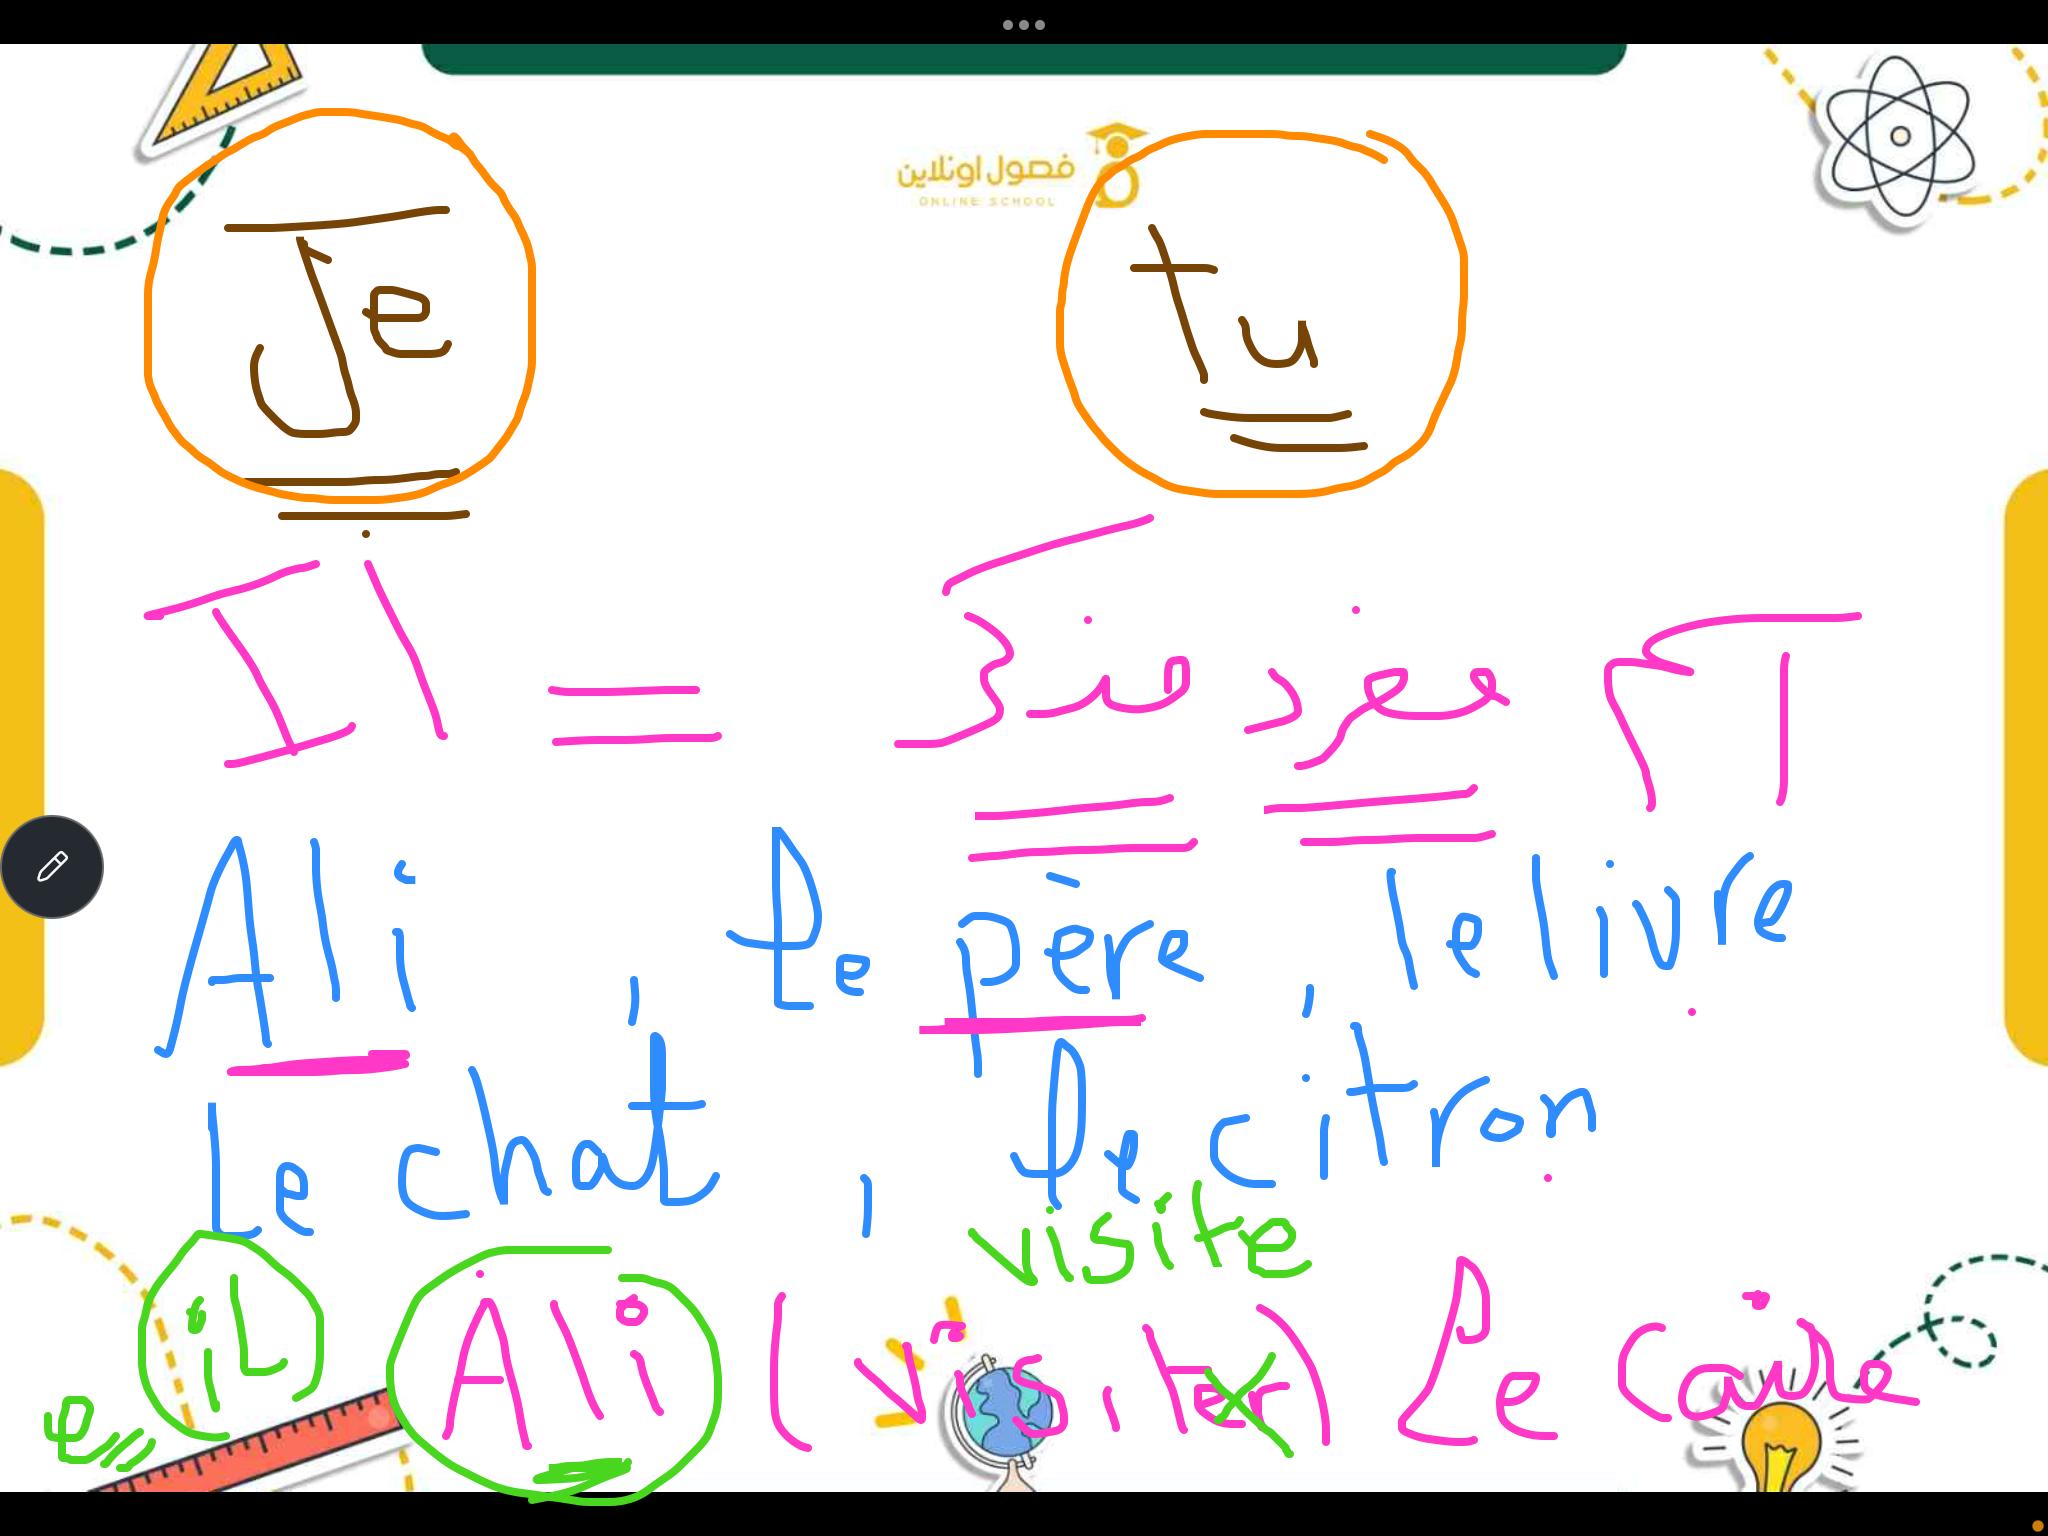 فصول اونلاين
ONLINE SCHOOL
Je tu
Il = اسم مفرد مذكر
Ali , Le père , le livre
Le chat , Le citron
visite
il Ali (visiter) Le Caire
e